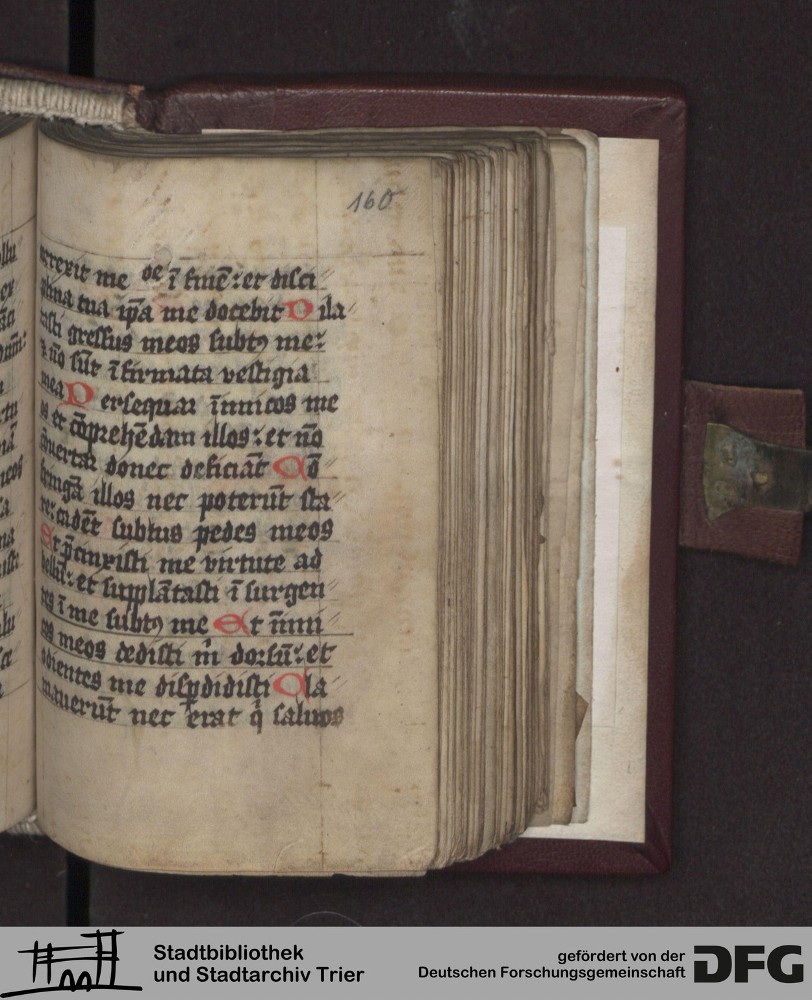 160
correxit me oe ī finē: et disci
plina tua ip̄a me docebit Dila
tasti gressus meos subtꝰ me:
⁊ nō sūt īfirmata vestigia
mea Persequar īimicos me
os et cōprehēdam illos: et nō
cōuertar donec deficiāt Cō
fringā illos nec poterūt sta
re: cadēt subtus pedes meos
Et p̄cinxisti me virtute ad
bellū: et supplātasti ī surgen
tes ī me subtꝰ me Et īimi
cos meos dedisti m̄ dorsū: et
odientes me disꝑdidisti Cla
mauerūt nec erat q̄ saluos
Stadtbibliothek
und Stadtarchiv Trier
gefördert von der
Deutschen Forschungsgemeinschaft
DFG